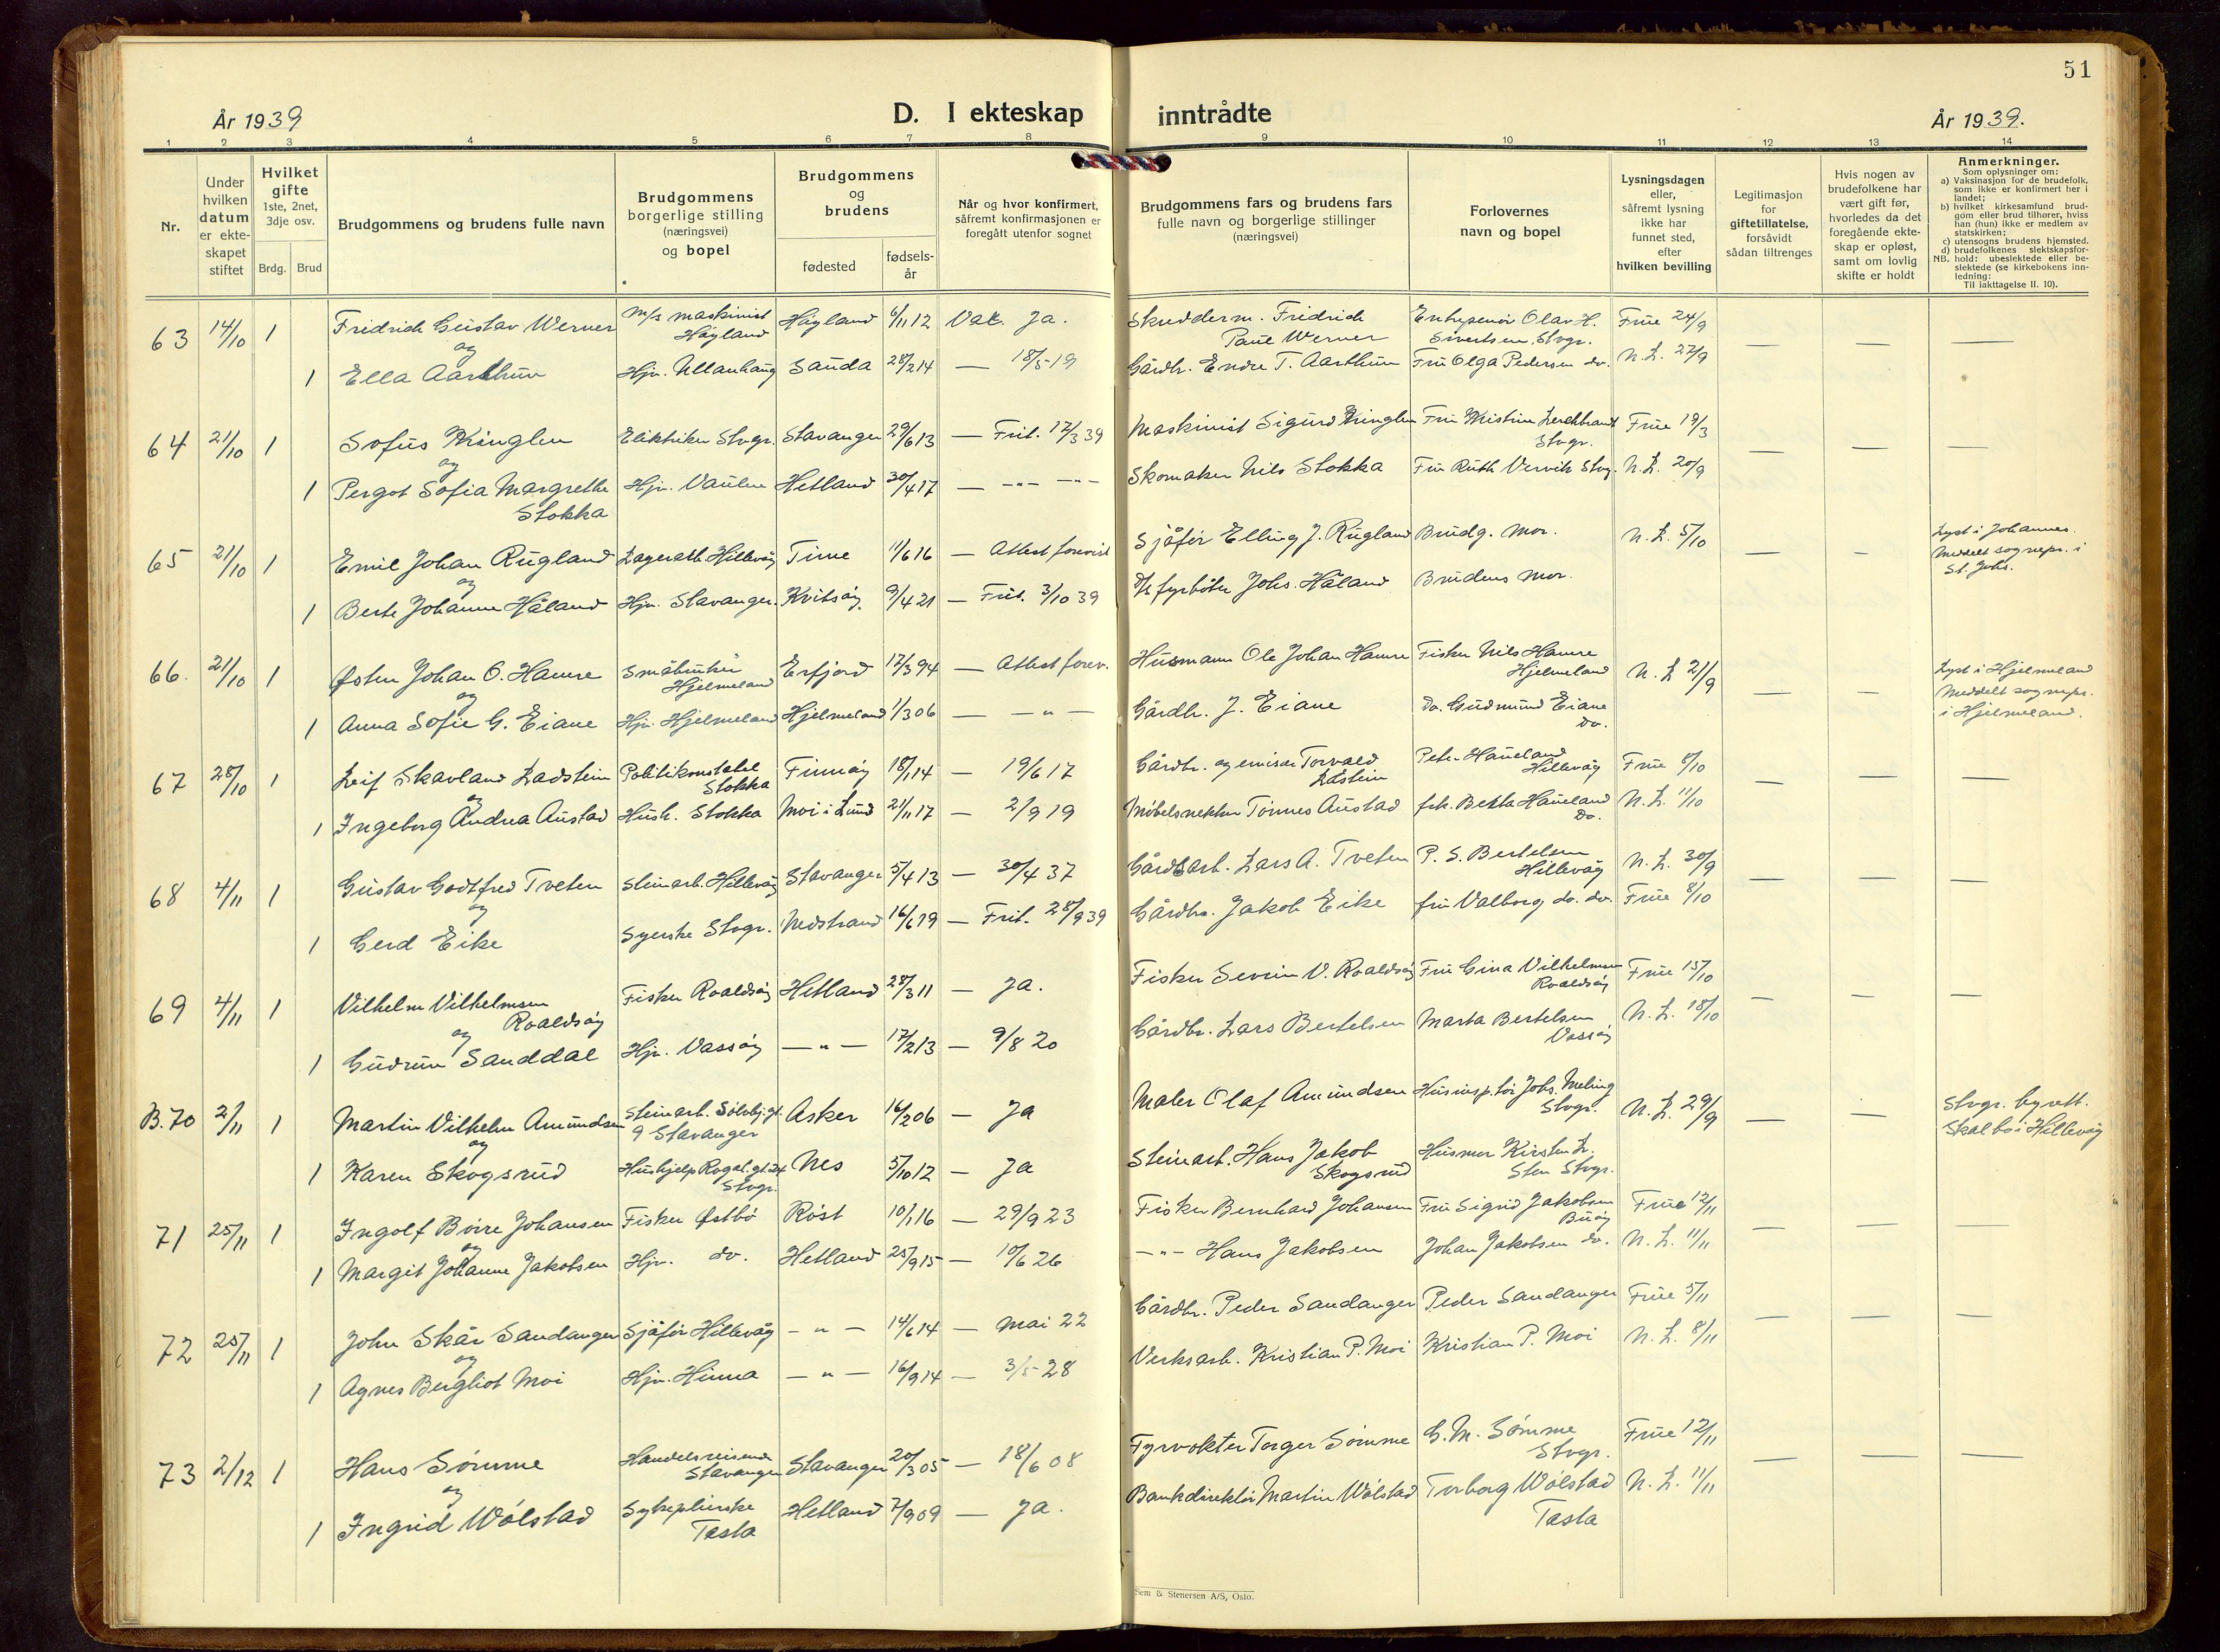 51
År 1939
D. I ekteskap inntrådte
År 1939.
1 2 3 4 5 6 7 8 9 10 11 12 13 14
Nr.
Under hvilken datum er ekte-skapet stiftet
Hvilket gifte 1ste, 2net, 3dje osv.
Brdg. Brud
Brudgommens og brudens fulle navn
Brudgommens borgerlige stilling (næringsvei) og bopel
Brudgommens og brudens
fødested
fødsels-år
Når og hvor konfirmert, såfremt konfirmasjonen er foregått utenfor sognet
Brudgommens fars og brudens fars fulle navn og borgerlige stillinger (næringsvei)
Forlovernes navn og bopel
Lysningsdagen eller, såfremt lysning ikke har funnet sted, efter hvilken bevilling
Legitimasjon for giftetillatelse, forsåvidt sådan tiltrenges
Hvis nogen av brudefolkene har vært gift før, hvorledes da det foregående ekte-skap er opløst, samt om lovlig skifte er holdt
Anmerkninger.
Som oplysning om:
a) Vaksinasjon for de brudefolk, som ikke er konfirmert her i landet;
b) hvilket kirkesamfund brud-gom eller brud tilhører, hviss han (hun) ikke er medlem av statskirken;
c) utensogns brudens hjemsted.
d) brudefolkenes slektskapsfor-hold: ubeslektede eller be-slektede (se kirkebokens inn-ledning:
NB.
Til iakttagelse II. 10).
63 14/10 1 Fridrich Gustav Werner m/s maskinist Høyland Høyland 6/11 12 Vak. Ja. Skredderm. Fridrich Paul Werner Entrepenør Olav H. Sivertsen, Stvgr. Frue 24/9 — — —
og
1 Ella Aarthun Hjv. Ullanhaug Sauda 28/2 14 — 18/5 19 Gårdbr. Endre T. Aarthun Fru Olga Pedersen do. N.L. 27/9
64 21/10 1 Sofus Kringlen Elektriker Stvgr. Stavanger 29/6 13 — Frit. 17/3 39 Maskinist Sigurd Kringlen Fru Kristine Stvgr. Frue 19/3 — — —
og
1 Pergot Sofia Margrethe Stokka Hjv. Vaulen Hetland 30/4 17 — -"- -"- Skomaker Nils Stokka Fru Ruth Vervik Stvg. N.L. 20/9
65 21/10 1 Emil Johan Rugland Lagerarb. Hillevåg Time 11/6 16 — Attest forevist Sjåfør Elling J. Rugland Brudg. mor. N.L. 5/10 — — Lyst i Johannes. Meddelt sognepr. i St. Johs.
og
1 Berte Johanne Håland Hjv. Stavanger. Kvitsøy 9/4 21 — Frit. 3/10 39 D/s fyrbøter Johs. Håland Brudens mor.
66. 21/10 1 Østen Johan O. Hamre Småbruker Hjelmeland Erfjord 17/3 94 — Attest forev. Husmann Ole Johan Hamre Fisker Nils Hamre Hjelmeland N.L 21/9 — — Lyst i Hjelmeland Meddelt sognepr. i Hjelmeland.
og
1 Anna Sofie G. Eiane Hjv. Hjelmeland Hjelmeland 1/3 06 — -"- Gårdbr. J. Eiane Do. Gudmund Eiane Do.
67 28/10 1 Leif Skavland Ladstein Politikonstabel Stokka Finnøy 18/1 14 — 19/6 17 Gårdbr. og emisær Torvald Ladstein Peter Haueland Hillevåg Frue 8/10 — — —
og
1 Ingeborg Andrea Austad Hush. Stokka Moi i Lund 21/11 17 — 2/9 19 Møbelsnekker Tønnes Austad frk. Berta Haueland Do. N.L. 11/10
68 4/11 1 Gustav Godtfred Tveten Steinarb. Hillevåg Stavanger 5/4 13 — 30/4 37 Gårdsarb. Lars A. Tveten P. S. Bertelsen Hillevåg N.L. 30/9 — — —
og
1 Gerd Eike Syerske Stvgr. Nedstrand 16/6 19 — Frit. 28/9 39 Gårdbr. Jakob Eike fru Valborg do. do. Frue 8/10
69 4/11 1 Vilhelm Vilhelmsen Roaldsøy Fisker Roaldsøy Hetland 28/3 11 — Ja. Fisker Sevrin V. Roaldsøy Fru Gina Vilhelmsen Roaldsøy Frue 15/10 — — —
og
1 Gudrun Sanddal Hjv. Vassøy —"— 17/2 13 — 9/8 20 Gårdbr. Lars Bertelsen Marta Bertelsen Vassøy N.L. 18/10
B.70 2/11 1 Martin Vilhelm Amundsen Steinarb. Sølvbj.gt. 9 Stavanger Asker 16/2 06 — Ja Maler Olaf Amundsen Husinsp.tør Johs. Meling Stvgr. N.L. 29/9 — — Stvgr. byrett. Skal bo i Hillevåg
og
1 Karen Skogsrud Hushjelp Rogal.gt. 24 Stvgr. Nes 5/10 12 — Ja Steinarb. Hans Jakob Skogsrud Husmor Kirsten L. Sten Stvgr.
71 25/11 1 Ingolf Børre Johansen Fisker Østbø Røst 10/1 16 — 29/9 23 Fisker Bernhard Johansen Fru Sigrid Jakobsen Buøy Frue 12/11 — — —
og
1 Margit Johanne Jakobsen Hjv. do. Hetland 25/9 15 — 10/6 26 —"— Hans Jakobsen Johan Jakobsen do. N.L. 11/11
72 25/11 1 John Skår Sandanger Sjåfør Hillevåg —"— 14/6 14 — Mai 22 Gårdbr. Peder Sandanger Peder Sandanger Frue 5/11 — — —
og
1 Agnes Bergliot Moi Hjv. Hinna —"— 16/9 14 — 3/5 28 Verksarb. Kristian P. Moi Kristian P. Moi N.L. 8/11
73 2/12 1 Hans Sømme Handelsreisende Stavanger Stavanger 20/3 05 — 18/6 08 Fyrvokter Torger Sømme G. M. Sømme Stvgr. Frue 12/11 — — —
og
1 Ingrid Wølstad Sykepleierske Tasta Hetland 7/9 09 — Ja. Bankdirektør Martin Wølstad Torborg Wølstad Tasta N.L. 11/11
Sem & Stenersen A/S, Oslo.